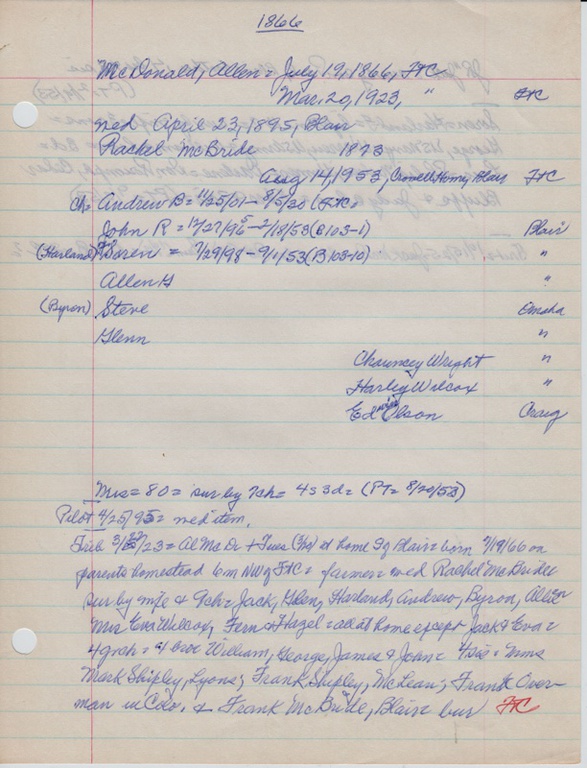 1866
McDonald, Allen = July 19, 1866, FtC
Mar. 20, 1923, " FtC
wed April 23, 1895, Blair
Rachel McBride 1873
Aug 14, 1953, Crowell Home, Blair FtC
Ch= Andrew B = 11/25/01 - 8/5/20 (FtC)
John R = 12/27/96 - 2/18/53 (B103-1) Blair
(Harland) Soren = 7/29/98 - 9/1/53 (B103-10) "
Allen H "
(Byron) Steve Omaha
Glenn "
Chauncey Wright "
Harley Wilcox "
Ed Olson Craig
Mrs = 80 = sur by 7ch = 4s 3d = (PT = 8/20/53)
Pilot 4/25/95 = wed item.
Trib 3/23 = Al McD + Tues (3/20) at home S of Blair = born 7/19/66 on
parents homestead 6m NW of FtC = farmer = wed Rachel McBride
sur by wife & 9ch = Jack, Helen, Harland, Andrew, Byron, Allen
Mrs Eva Wilcox, Fern & Hazel = all at home except Jack & Eva =
4 grch = 4 bros William, George, James & John = 4 sis = Mmes
Mark Shipley, Lyons; Frank Shipley, McLean; Frank Over-
man in Colo. & Frank McBride, Blair bur FtC